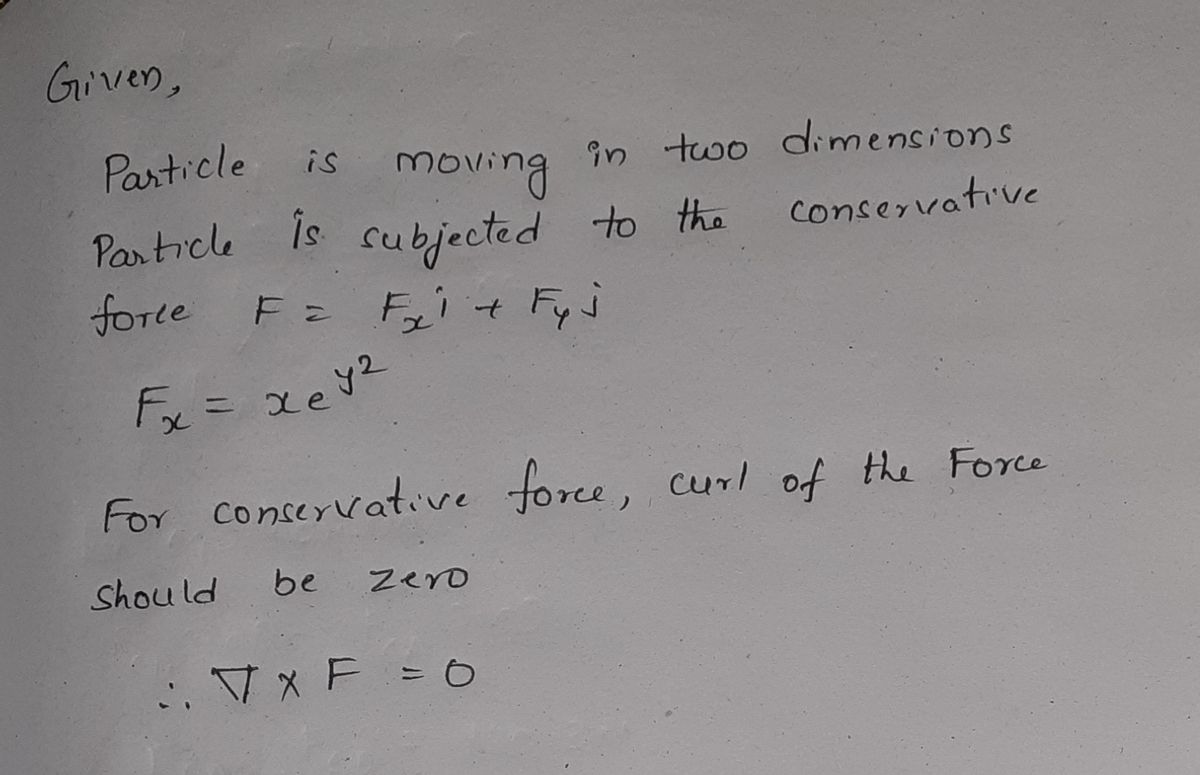 Given,
Particle is moving in two dimensions
Particle is subjected to the conservative
force F = Fₓi + Fᵧj
Fₓ = xe^y2
For conservative force, curl of the Force
should be zero
∴ ∇ x F = 0